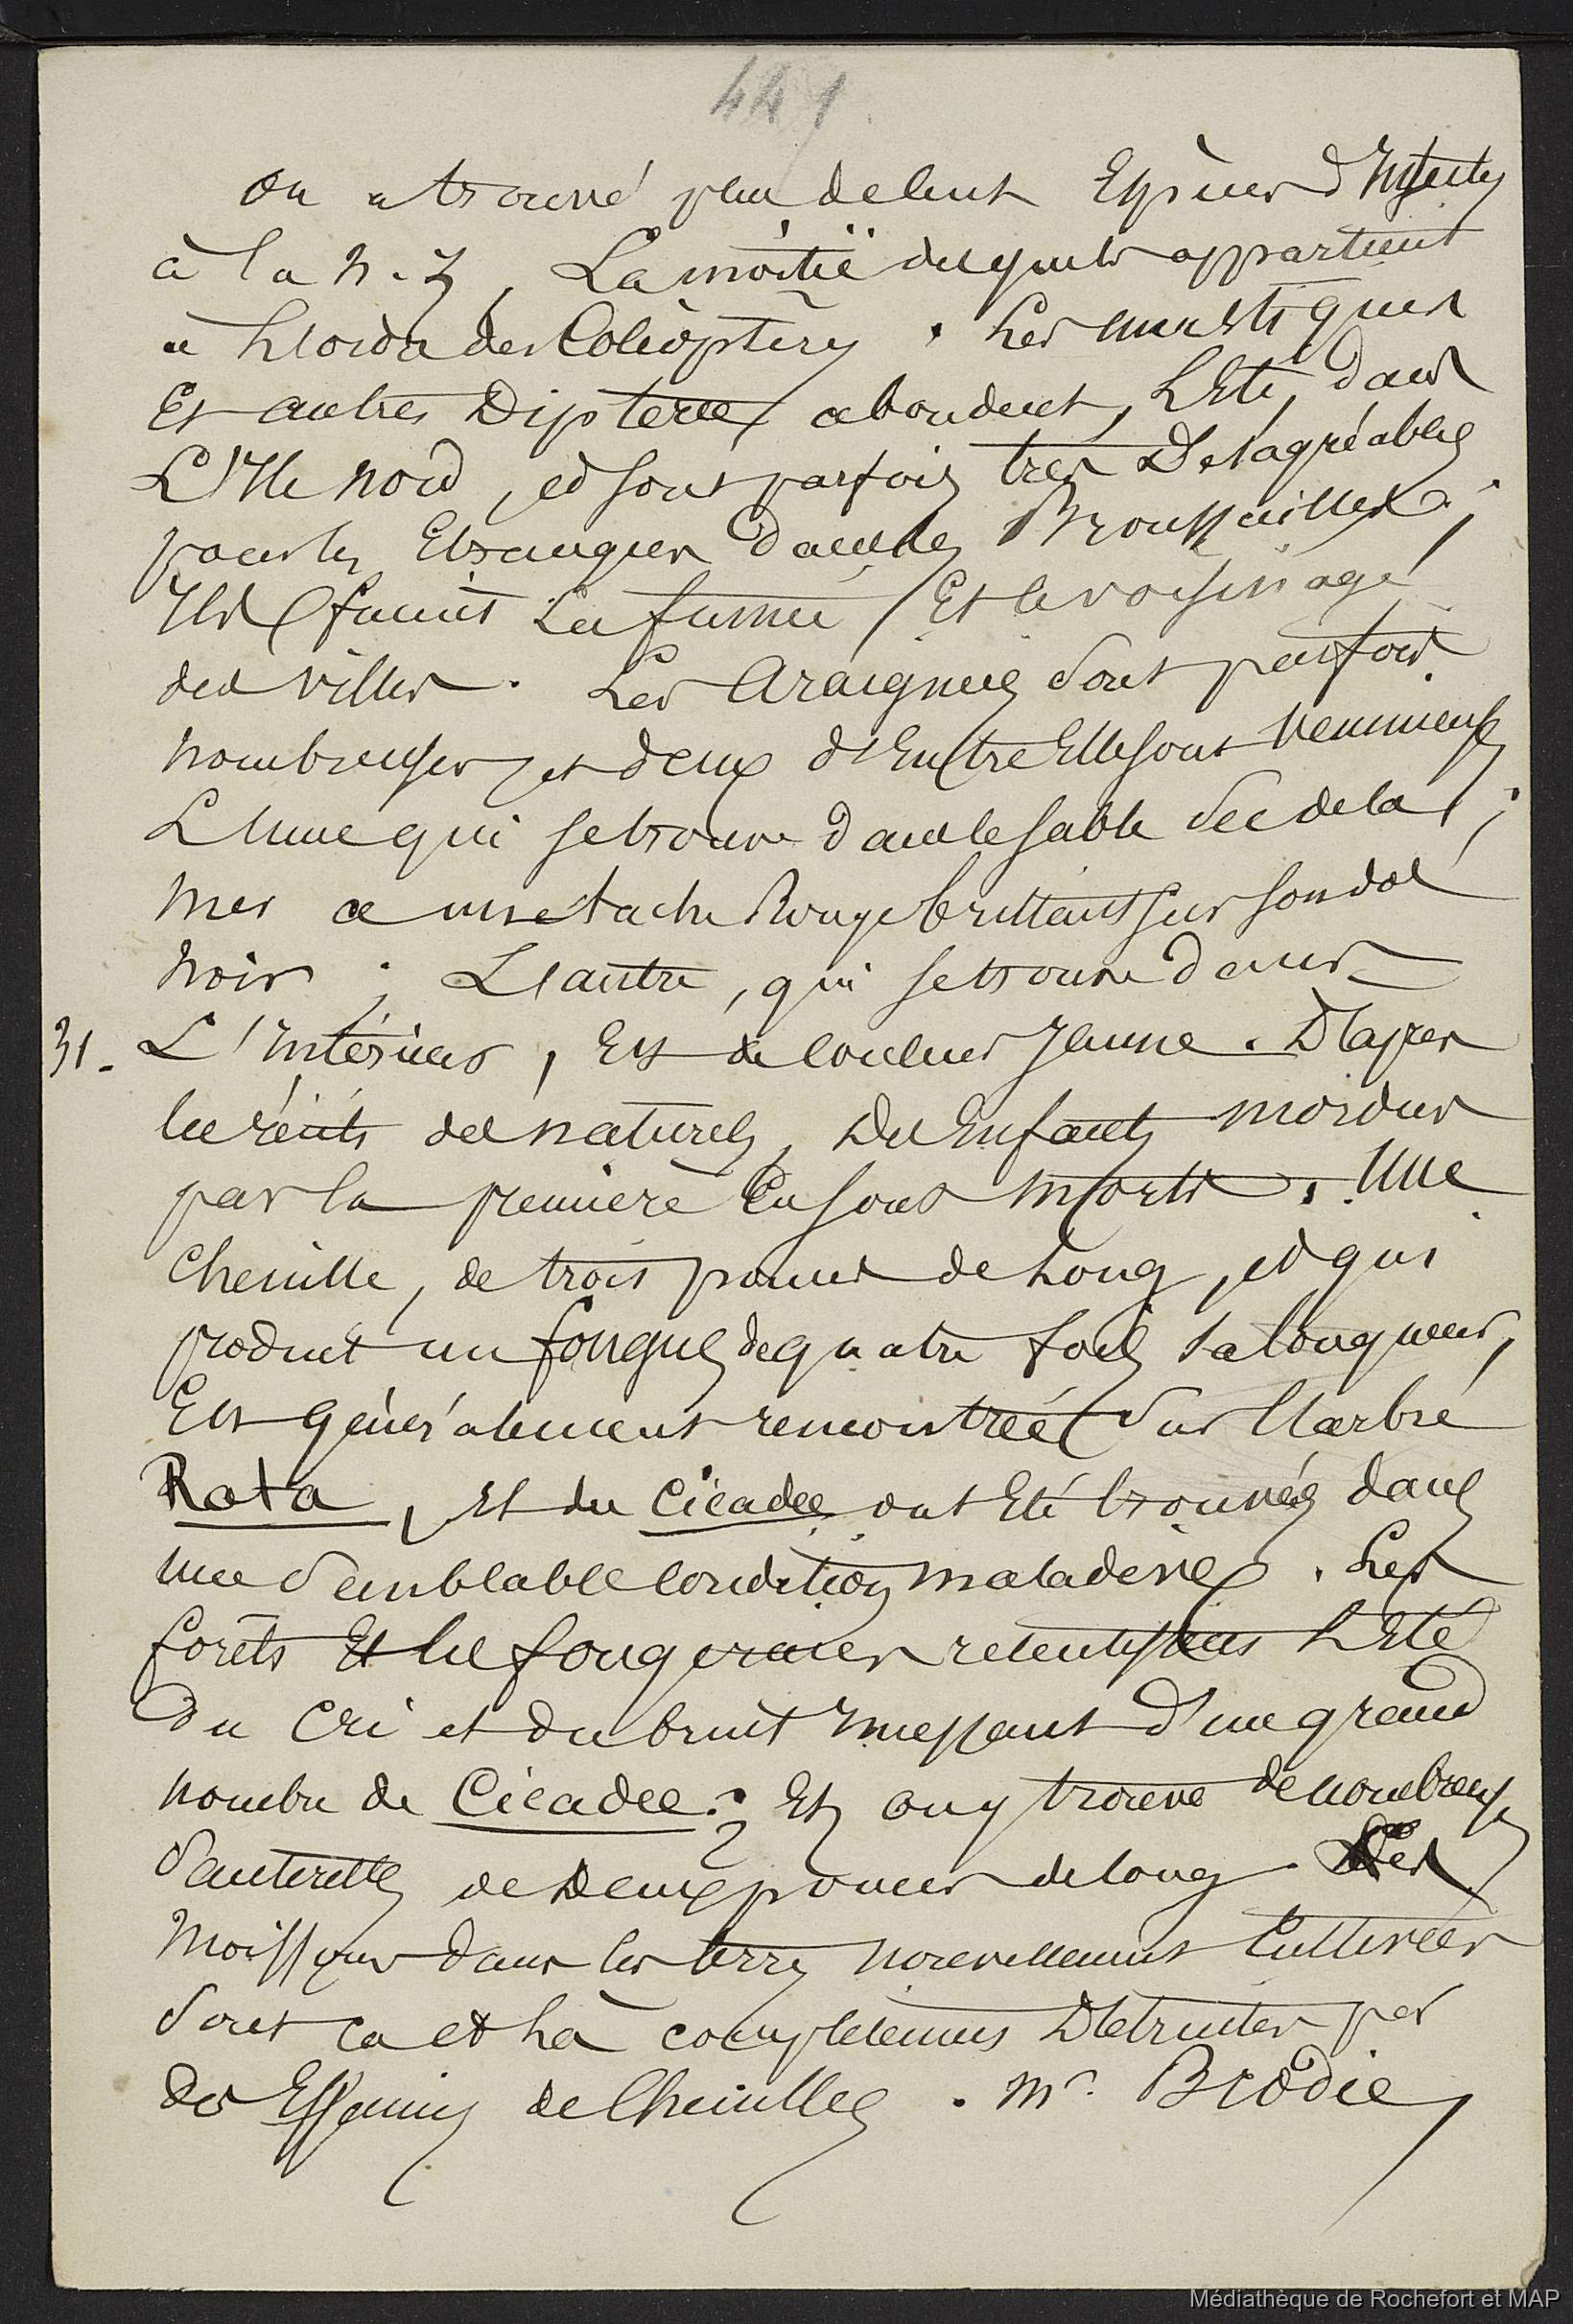 441
On a trouvé plus de cent Espèces d'Insectes
à la N. Z, La moitié desquels appartient
à L'Ordre des Coléoptères . Les moustiques
Et autres Diptères abondent, L'Eté, dans
L'Ile Nord, et sont parfois très Désagréables
pour les Etrangers dans les Broussailles ;
Ils fuient La fumée Et le voisinage
des villes . Les Araignées sont parfois
nombreuses, et deux d'Entre Elles sont venimeuses ;
L'Une qui se trouve dans le sable sec de la
mer a une tache Rouge brillant sur son dos
noir ; L'autre, qui se trouve dans
31. L'Intérieur, Est de couleur Jaune . D'après
les récits des naturels, Des Enfants mordus
par la première En sont morts . Une
Chenille, de trois pouces de Long, et qui
produit un fongus de quatre fois sa longueur,
Est généralement rencontrée sur l'arbre
Rata, Et des Cicadee ont Eté trouvées dans
une semblable condition maladive . Les
forêts Et les fougeraies retentissent L'Eté
du Cri et du bruit incessant d'un grand
nombre de Cicadee ; Et on y trouve de nombreuses
Sauterelles de Deux pouces de long . Les
Moissons dans les terres nouvellement Cultivées
sont ça et Là complètement Détruites par
des Essaims de Chenilles . Mr. Brodie,
Médiathèque de Rochefort et MAP